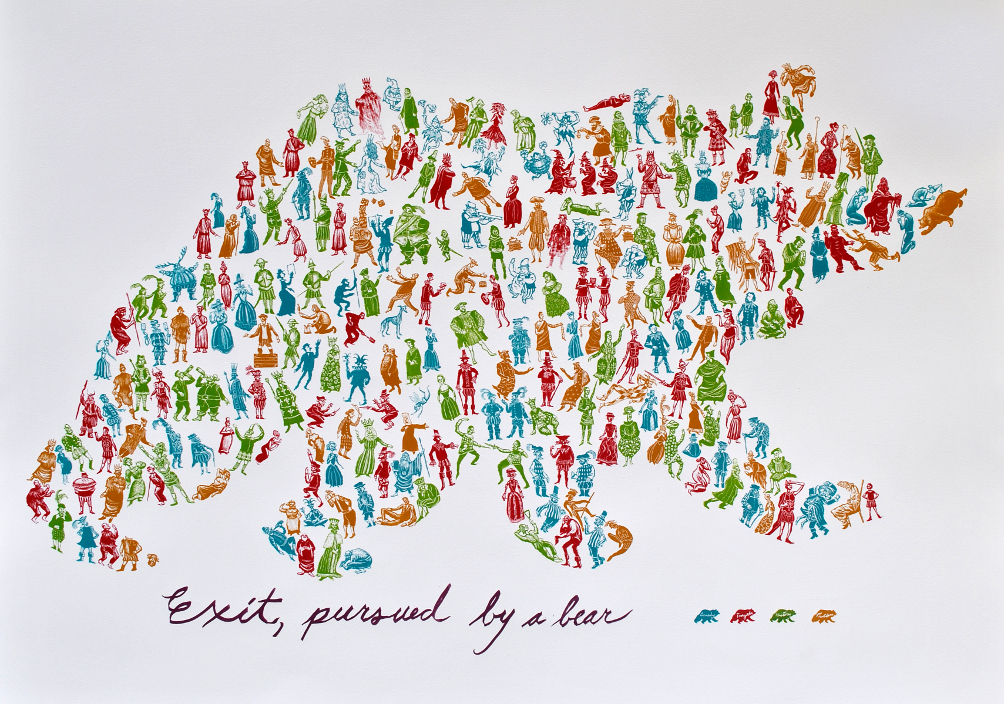 Exit, pursued by a bear